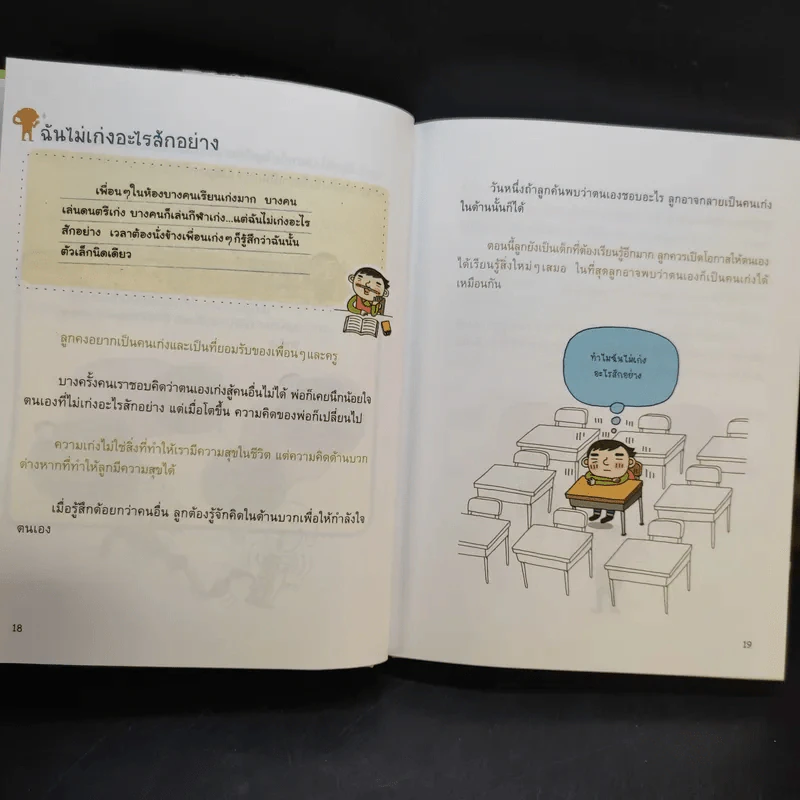 ฉันไม่เก่งอะไรสักอย่าง
เพื่อนๆในห้องบางคนเรียนเก่งมาก บางคน
เล่นดนตรีเก่ง บางคนก็เล่นกีฬาเก่ง...แต่ฉันไม่เก่งอะไร
สักอย่าง เวลาต้องนั่งข้างเพื่อนเก่งๆก็รู้สึกว่าฉันนั้น
ตัวเล็กนิดเดียว
ลูกคงอยากเป็นคนเก่งและเป็นที่ยอมรับของเพื่อนๆและครู
บางครั้งคนเราชอบคิดว่าตนเองเก่งสู้คนอื่นไม่ได้ พ่อก็เคยนึกน้อยใจ
ตนเองที่ไม่เก่งอะไรสักอย่าง แต่เมื่อโตขึ้น ความคิดของพ่อก็เปลี่ยนไป
ความเก่งไม่ใช่สิ่งที่ทำให้เรามีความสุขในชีวิต แต่ความคิดด้านบวก
ต่างหากที่ทำให้ลูกมีความสุขได้
เมื่อรู้สึกด้อยกว่าคนอื่น ลูกต้องรู้จักคิดในด้านบวกเพื่อให้กำลังใจ
ตนเอง
18
วันหนึ่งถ้าลูกค้นพบว่าตนเองชอบอะไร ลูกอาจกลายเป็นคนเก่ง
ในด้านนั้นก็ได้
ตอนนี้ลูกยังเป็นเด็กที่ต้องเรียนรู้อีกมาก ลูกควรเปิดโอกาสให้ตนเอง
ได้เรียนรู้สิ่งใหม่ๆเสมอ ในที่สุดลูกอาจพบว่าตนเองก็เป็นคนเก่งได้
เหมือนกัน
ทำไมฉันไม่เก่ง
อะไรสักอย่าง
19